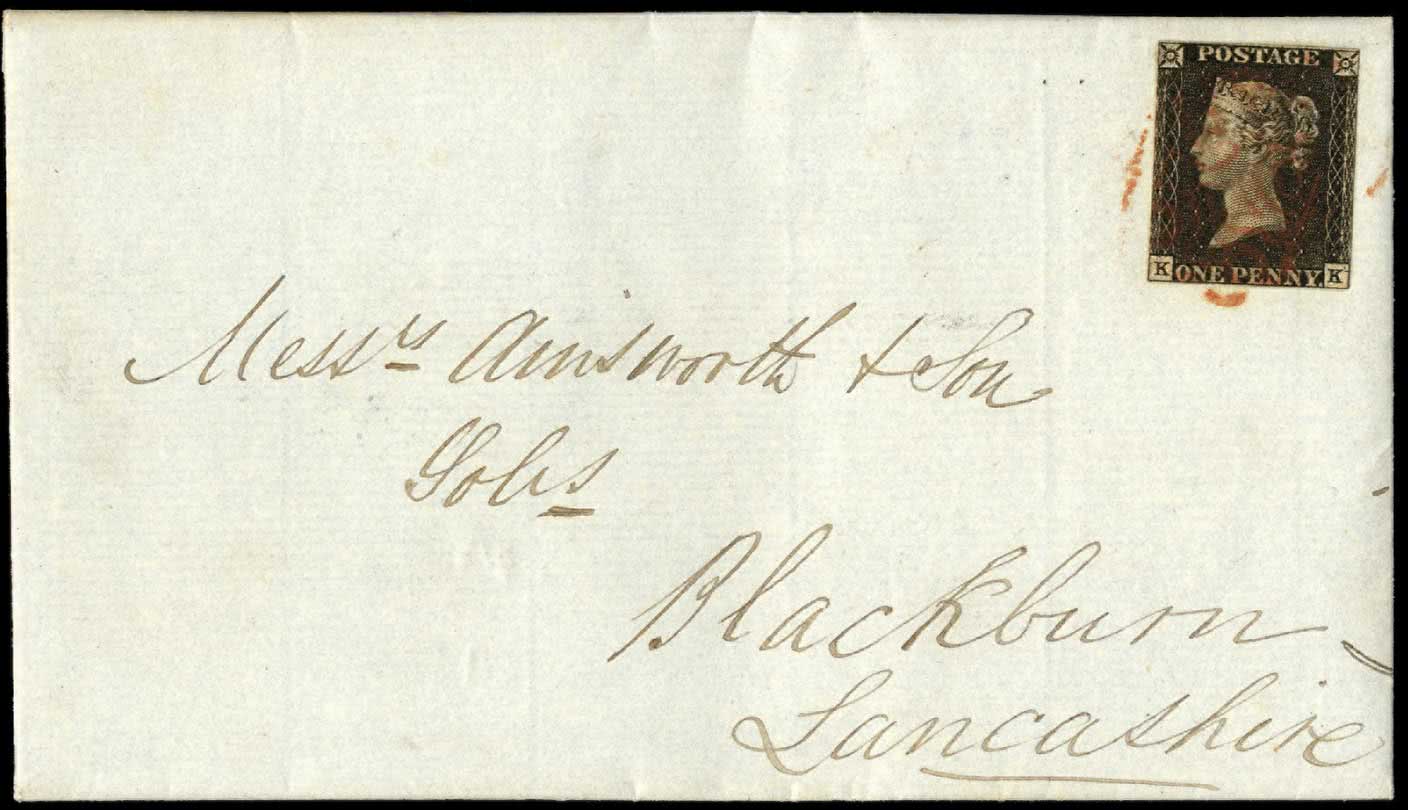 POSTAGE
K ONE PENNY. K
Messrs Ainsworth & Son
Solrs
Blackburn
Lancashire